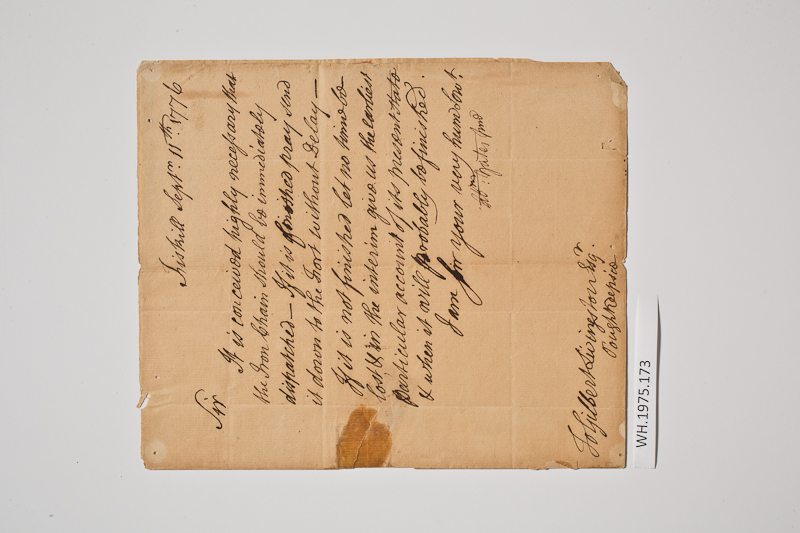 Fishkill Sept.r 11th. 1776
Sir
It is conceived highly necessary that
the Iron Chain should be immediately
dispatched — If it is finished pray send
it down to the Fort without Delay —
If it is not finished let no time be
lost & in the interim give us the earliest
particular account of its present state
& when it will probably be finished.
I am for your very humb Servt.
Yates
To Gilbert Livingston Esqr.
Poughkeepsie
WH.1975.173